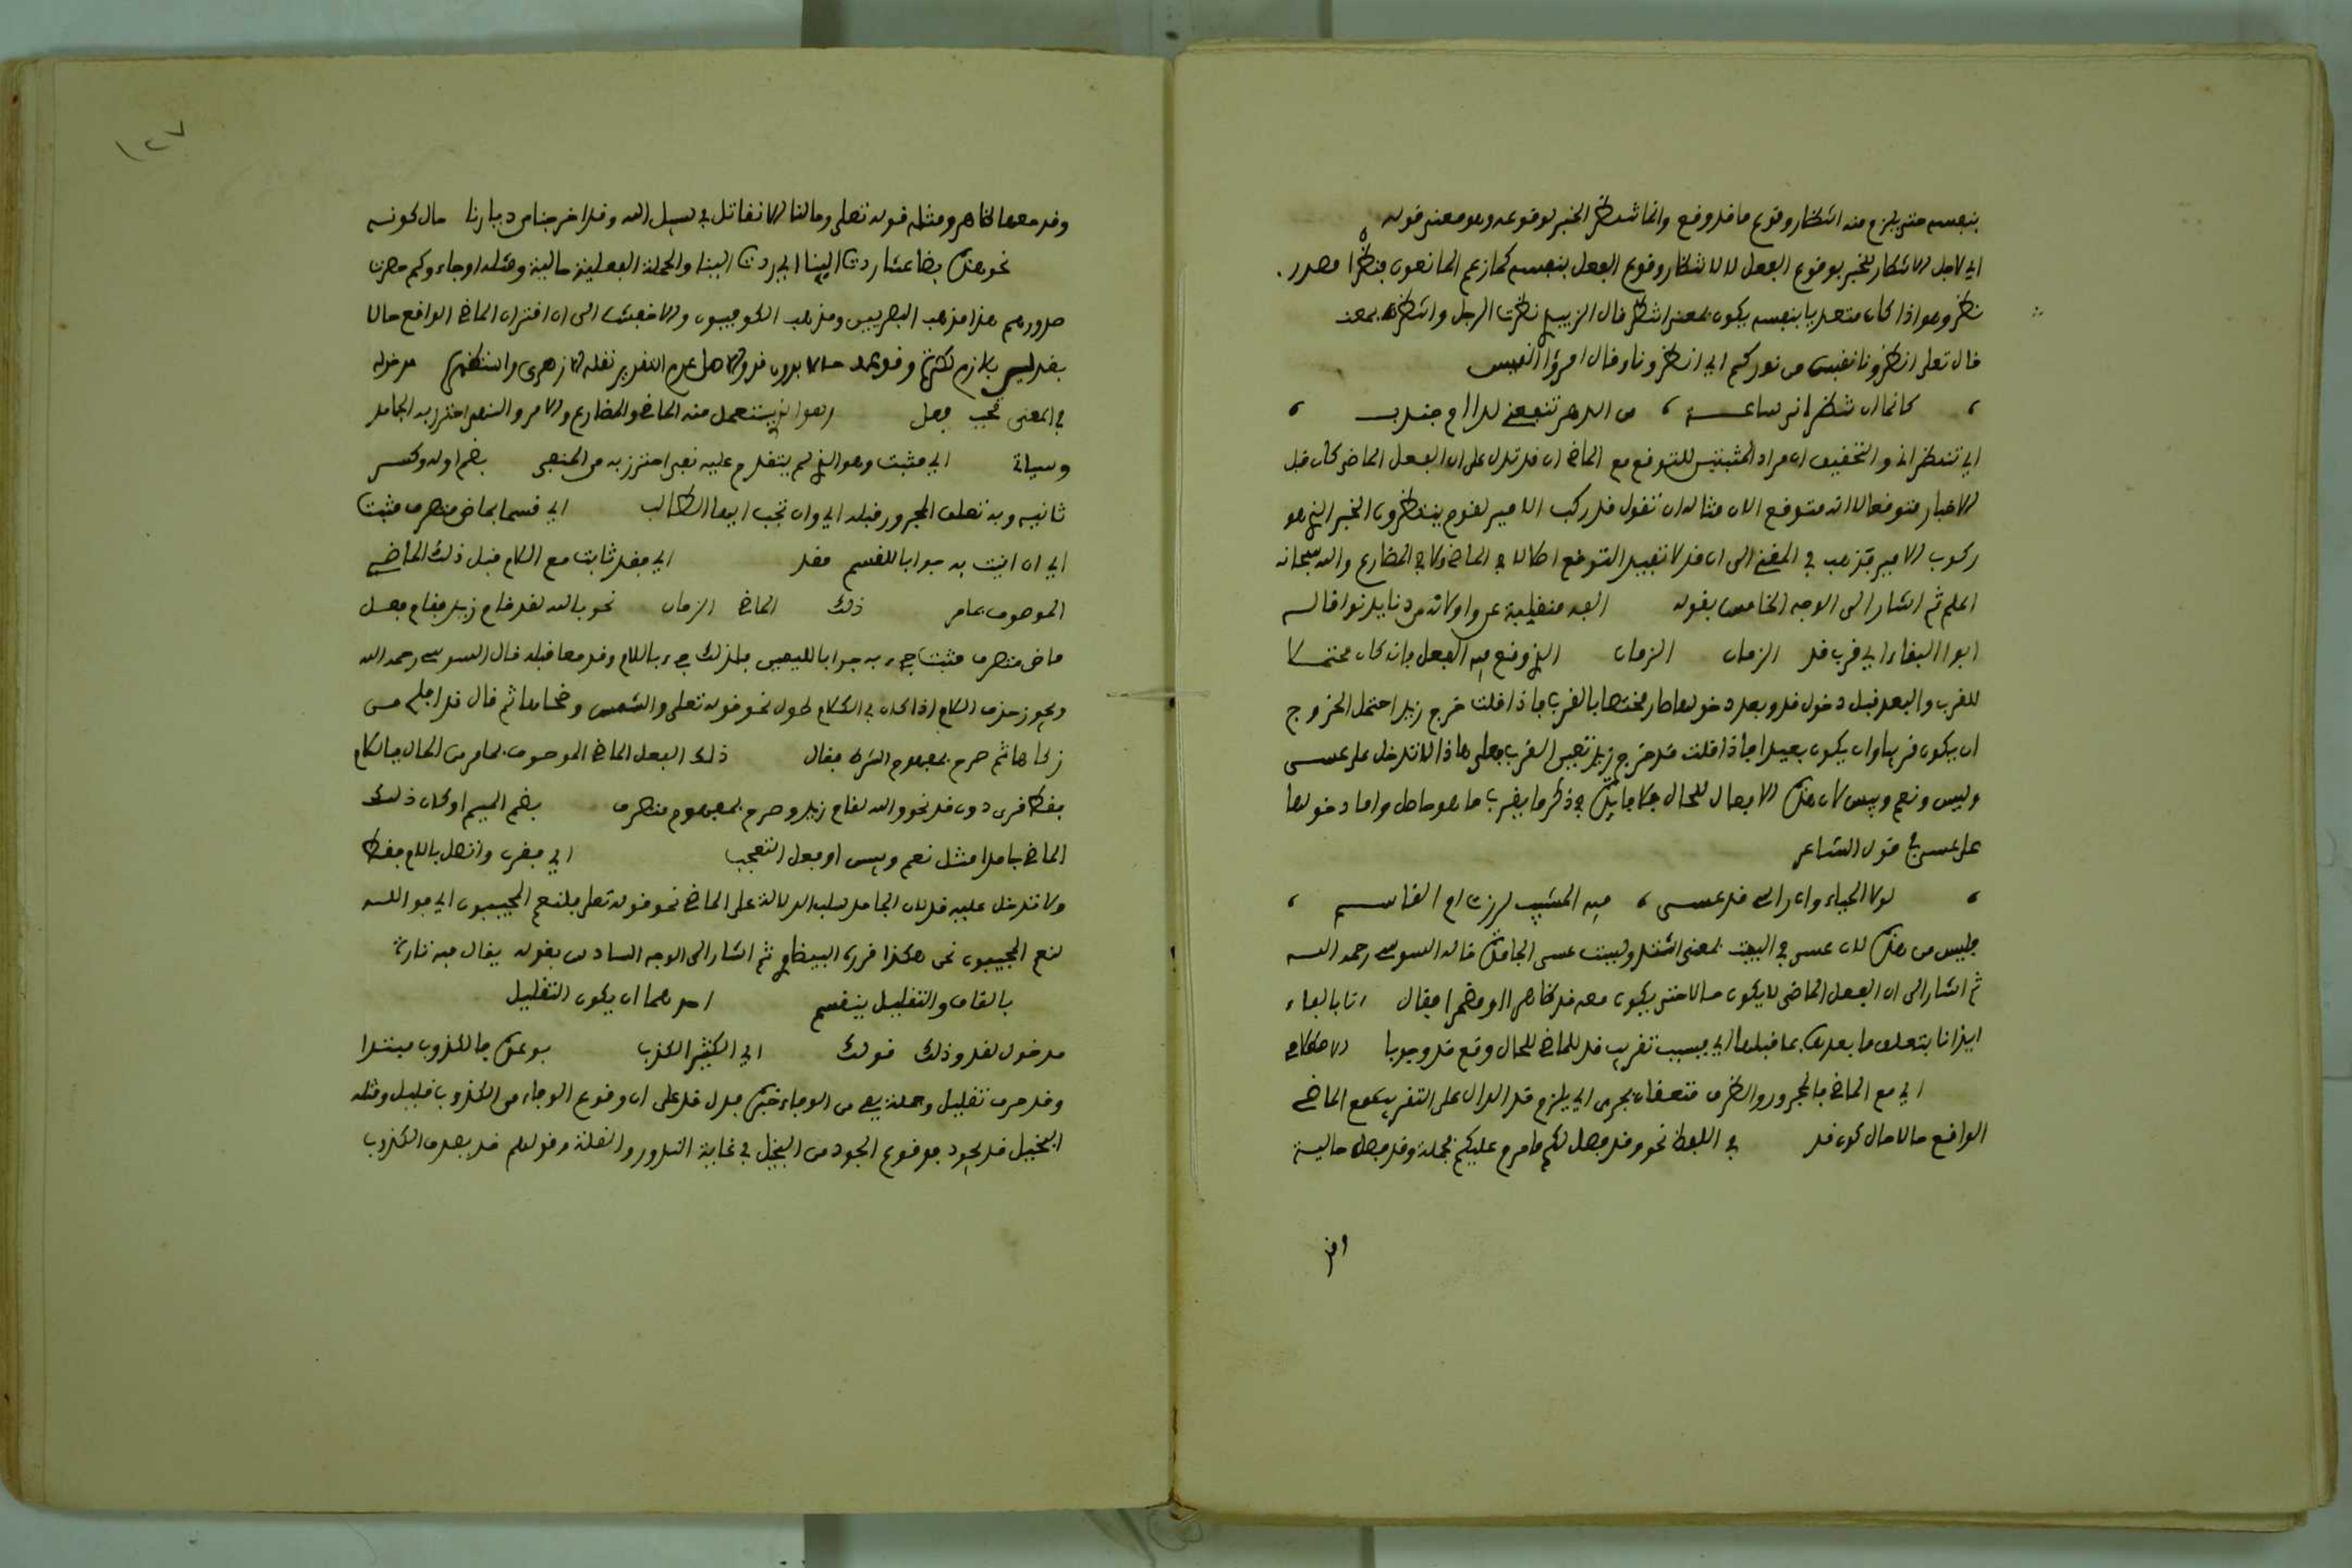 بنفسه حتى يلزم منه انتظار وقوع ما قد وقع وانما تنتظر الخبر بوقوعه وهو معنى قوله
اي لاجل الانتظار للخبر بوقوع الفعل لا لانتظار وقوع الفعل بنفسه كما زعم المانعون منتظرا مصدر
نظر وهو اذا كان متعديا بنفسه يكون بمعنى انتظر قال الزبيدي نظرت الرجل وانتظرته بمعنى
قال تعلى انظرونا نقتبس من نوركم اي انتظرونا وقال امرؤ القيس
كانما ان تنظراني ساعة ، من الدهر تنفعني لدا ام جندب
اي تنتظراني والتحقيق ان مراد المثبتين للتوقع مع الماضي ان قد تدل على ان الفعل الماضي كان قبل
الاخبار متوقعا لا انه متوقع الان مثاله ان تقول قد ركب الامير لقوم ينتظرون الخبر الذي هو
ركوب الامير وذهب في المغني الى ان قد لا تفيد التوقع اصلا لا في الماضي ولا في المضارع والله سبحانه
اعلم ثم اشار الى الوجه الخامس بقوله الفه منقلبة عن واو لانه من دنا يدنوا قاله
ابوا البقاء اي قرب قد الزمان الزمان الذي وقع فيه الفعل فانه كان محتملا
للقرب والبعد قبل دخول قد وبعد دخولها صار مختصا بالقرب فاذا قلت خرج زيد احتمل الخروج
ان يكون قريبا وان يكون بعيدا فاذا قلت قد خرج زيد تعين القرب فعلى هاذا لا تدخل على عسى
وليس ونعم وبيس لان هذه الافعال للحال فلا فايدة في ذكر ما يقرب ما هو حاصل واما دخولها
على عسى في قول الشاعر
لولا الحياء وان راسي قد عسى ، فيه المشيب لزرت ام القاسم
فليس من هذه لان عسى في البيت بمعنى اشتد وليست عسى الجامدة قاله السوسي رحمه الله
ثم اشار الى ان الفعل الماضي لا يكون حالا حتى يكون معه قد ظاهرا او مضمرا فقال اتا بالفاء
ايذانا بتعلق ما بعدها بما قبلها اي بسبب تقريب قد للماضي للحال وقع قد وجوبا الاصطلاحي
اي مع الماضي فالمجرور والظرف متعلقان بجرى اي يلزم قد الدال على التقريب مع الماضي
الواقع حالا حال كون قد في اللفظ نحو وقد فصل لكم ما حرم عليكم فجملة وقد فصل حالية
وقد
١٢٧
وقد معها ظاهر ومثله قوله تعلى وما لنا الا نقاتل في سبيل الله وقد اخرجنا من ديارنا حال كونه
نحو هذه بضاعتنا ردت الينا اي قد ردت الينا والجملة الفعلية حالية ومثله او جاءوكم حصرت
صدورهم هذا مذهب البصريين ومذهب الكوفيون والاخفش الى ان اقتران الماضي الواقع حالا
بقد ليس بلازم لكثرة وقوعه حالا بدون قد والاصل عدم التقدير نقله الازهري واستظهره مدخوله
في المعنى تجب فعل وهو الذي يستعمل منه الماضي والمضارع والامر والنهي احترز به الجامد
وسياتي اي مثبت وهو الذي لم يتقدم عليه نفي احترز به من المنفي بضم اوله وكسر
ثانيه وبه تعلق المجرور قبله اي وان تجب ايها الطالب اي قسما بماض متصرف مثبت
اي ان اتيت به جوابا للقسم فقد اي فقد ثابت مع اللام قبل ذلك الماضي
الموصوف بما مر ذلك الماضي الزمان نحو بالله لقد قام زيد فقام فعل
ماض متصرف مثبت جيء به جوابا لليمين فلذلك جيء باللام وقد معا قبله قال السوسي رحمه الله
ويجوز حذف اللام اذا كان في الكلام طول نحو قوله تعلى والشمس وضحاها ثم قال قد افلح من
زكاها ثم صرح بمفهوم الشرط فقال ذلك الفعل الماضي الموصوف بما مر من الحال فاللام
فقط قرن دون قد نحو والله لقام زيد وصرح بمفهوم متصرف بضم الميم او كان ذلك
الماضي جامدا مثل نعم وبيس او فعل التعجب اي يقرن واتصل باللام فقط
ولا تدخل عليه قد لان الجامد سلب الدلالة على الماضي نحو قوله تعلى فلنعم المجيبون اي فوالله
لنعم المجيبون نحن هكذا قرره البيضاوي ثم اشار الى الوجه السادس بقوله يقال فيه تارة
بالقاف والتقليل ينقسم احدهما ان يكون التقليل
مدخول لقد وذلك قولك اي الكثير الكذب يوعى فالكذوب مبتدا
وقد حرف تقليل وجملة يفي من الوفاء خبره فدل قد على ان وقوع الوفاء من الكذوب قليل ومثله
البخيل قد يجود فوقوع الجود من البخيل في غاية الندور والقلة وقولهم قد يصدق الكذوب